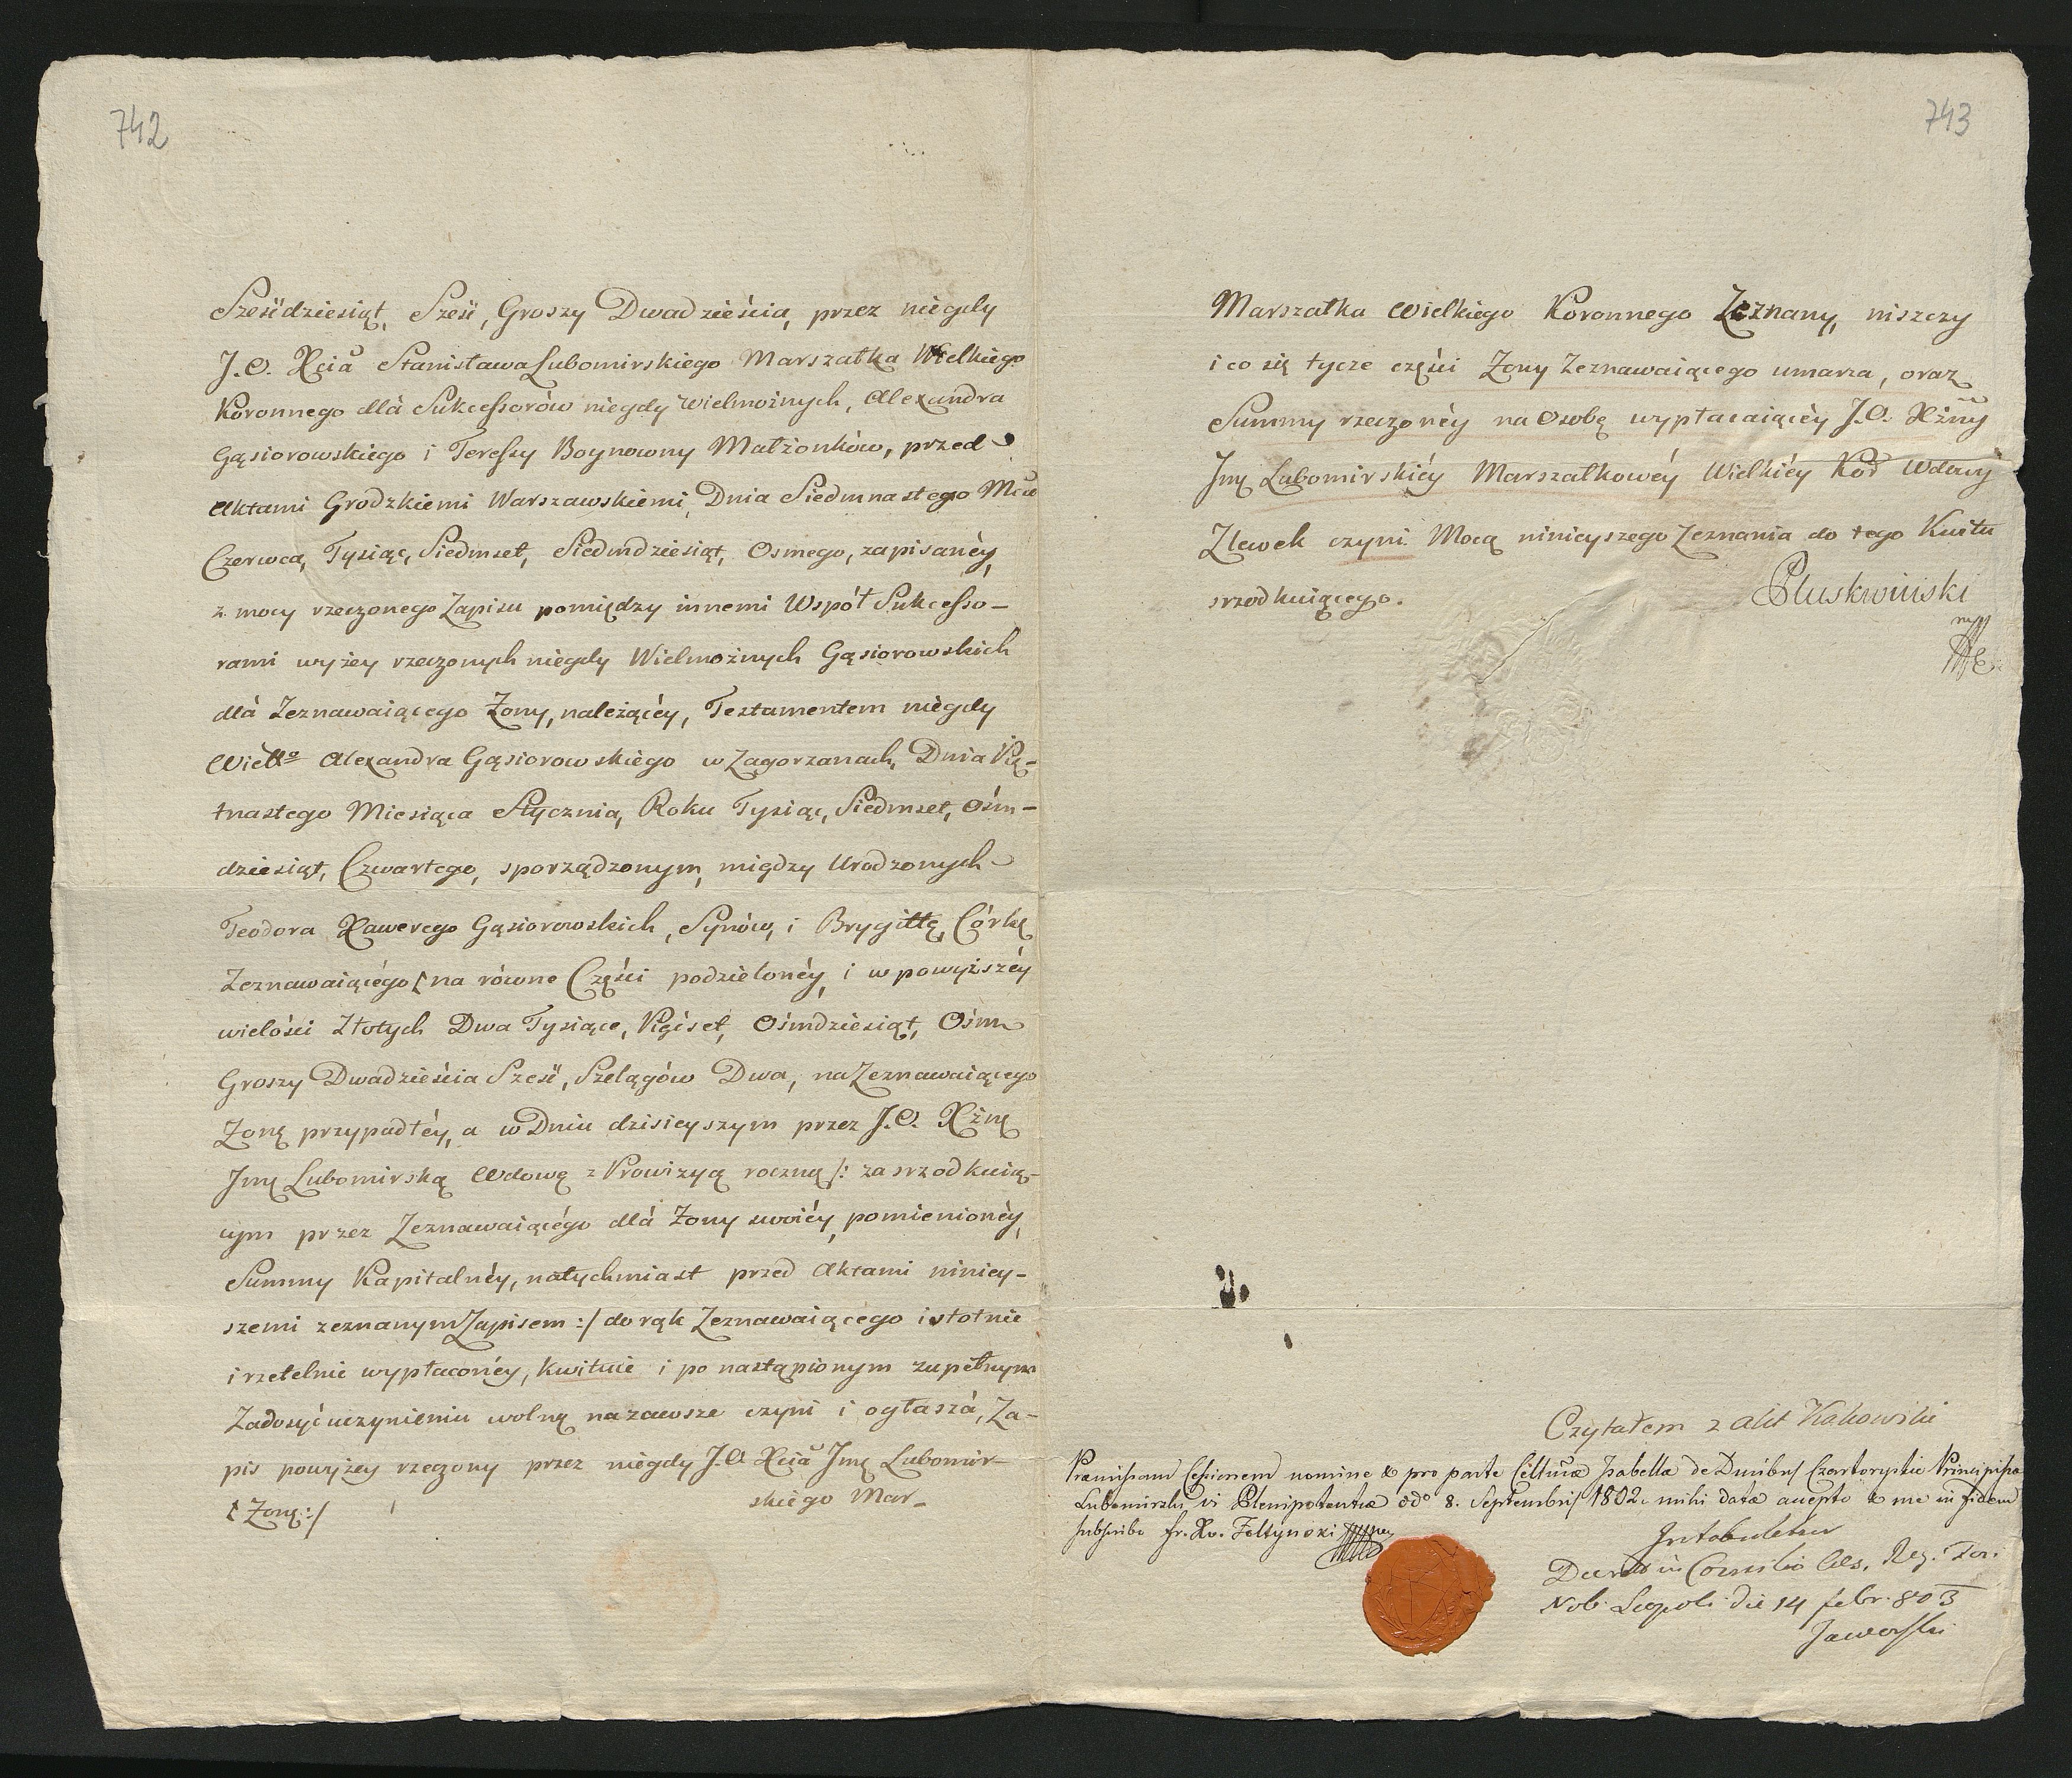 742
Sześdziesiąt, Sześć, Groszy Dwadzieścia, przez niegdy
J. O. Xcia Stanisława Lubomirskiego Marszałka Wielkiego
Koronnego dlá Sukcessorów niegdy Wielmożnych, Alexandra
Gąsiorowskiego i Teressy Boynowny Małżonków, przed
Aktami Grodzkiemi Warszawskiemi, Dnia Siedmnastego Mca
Czerwca, Tysiąc, Siedmset, Siedmdziesiąt, Osmego, zapisanéy,
z mocy rzeczonego Zapisu pomiędzy innemi Współ Sukcesso-
rami wyżey rzeczonych niegdy Wielmożnych Gąsiorowskich
dlá Zeznawaiącego Żony, należącéy, Testamentem niegdy
Wielgo Alexandra Gąsiorowskiego w Zagorzanach, Dnia Pię-
tnastego Miesiąca Stycznia, Roku Tysiąc, Siedmset, Ośm-
dziesiąt, Czwartego, sporządzonym, między Urodzonych
Teodora Xawerego Gąsiorowskich, Synów, i Brygittę, Córkę
Zeznawaiącégo [ na równe Części podzielonéy, i w powyższéy
wielości Złotych Dwa Tysiące, Pięćset, Ośmdziesiąt, Ośm
Groszy Dwadzieścia Sześć, Szelągów Dwa, na Zeznawaiącego
Żonę przypadłéy, a w Dniu dzisieyszym przez J. O. Xżnę
Jmę Lubomirską Wdowę z Prowizyą roczną /: za srzodkuią-
cym przez Zeznawaiącégo dlá Żony swoiéy, pomienionéy,
Summy Kapitalnéy, natychmiast przed Aktami niniey-
szemi zeznanym Zapisem :/ do rąk Zeznawaiącego istotnie
i rzetelnie wypłaconéy, kwituie i po nastąpionym zupełnym
Zadosyć uczynieniu wolną na zawsze czyni i ogłaszá, Za-
pis powyżey rzeczony przez niegdy J. O Xcia Jmę Lubomir-
skiego Mar-
[ Żonę :/
743
Marszałka Wielkiego Koronnego Zeznany, niszczy
i co się tycze części Żony Zeznawaiącego umarza, oraz
Summy rzeczonéy na Osobę wypłacaiącéy J. O. Xżny
Jmę Lubomirskiéy Marszałkowéy Wielkiéy Kor Wdowy
Zlewek czyni Mocą ninieyszego Zeznania do tego Kwitu
srzodkuiącego.
Pluskwiński
mp
Czytałem z Akt Kakowski
Præmissam Cessionem nomine & pro parte Celsmæ Isabellæ de Ducibus Czartoryskie Principissæ
Lubomirski vi Plenipotentiæ ddo 8. Septembris 1802. mihi datæ accepto & me in fidem
subscribo Fr. Xv. Feltynski mp
Intabuletur
Decret in Consilio Cæs. Reg. For.
Nob. Leopoli die 14 febr. 803
Jaworski